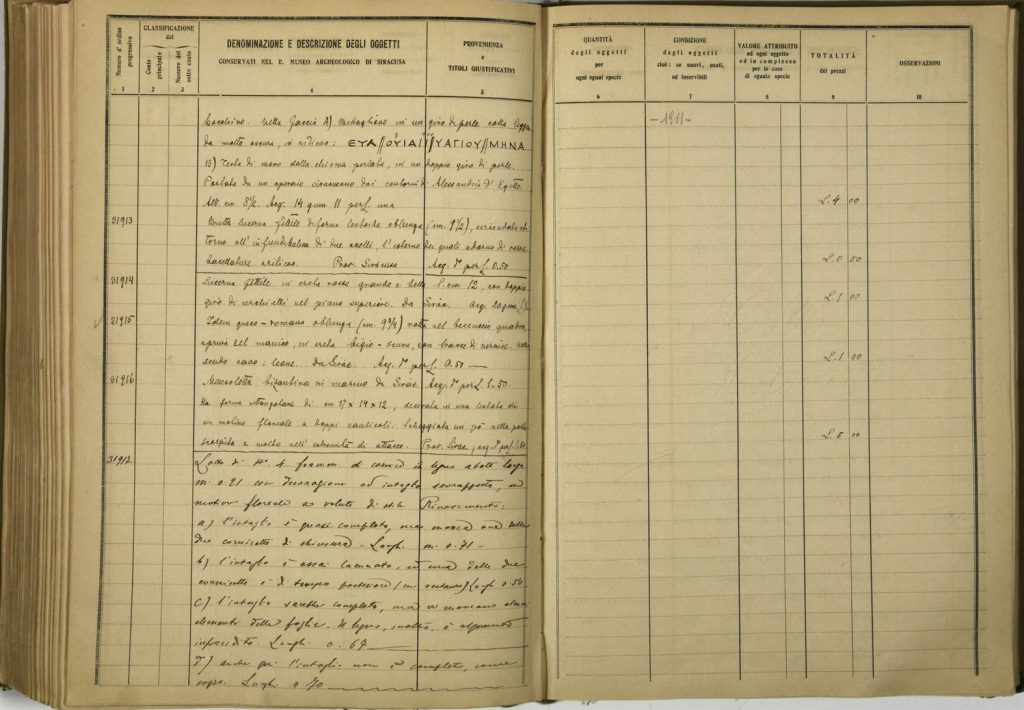 Numero d'ordine progressivo
CLASSIFICAZIONE
del
Conto principale
Numero del sotto conto
DENOMINAZIONE E DESCRIZIONE DEGLI OGGETTI
CONSERVATI NEL R. MUSEO ARCHEOLOGICO DI SIRACUSA
PROVENIENZA
e
TITOLI GIUSTIFICATIVI
1 2 3 4 5
nella faccia A) Medaglione in un giro di perle colla leggenda
da molto oscura, in rilievo: ΕΥΛ ΟΥΙΑ ΥΑΓΙΟΥ ΜΗΝΑ
B) Testa di moro dalla chioma perlata, in un doppio giro di perle.
Portata da un operaio siracusano dai contorni di Alessandria d'Egitto.
Alt. cm 8½. Acq. 14 giugn 11 per £. una
31913
Brutta lucerna fittile di forma lenticolare oblunga (cm. 9½), circondata at
torno all'infundibulum di due anelli, l'esterno dei quali adorno di rozze
baccellature a rilievo. Prov. Siracusa Acq. I° per £. 0.50
31914
Lucerna fittile in creta rossa grande e bella l. cm. 12, con doppio
giro di cerchielli nel piano superiore. Da Sirac. acq. 20 giugn
31915
Idem greco-romana oblunga (cm. 9 ) rotta nel beccuccio quadro,
priva del manico, in creta bigio-scura, con tracce di vernice. Nello
scudo cavo: leone. Da Sirac. Acq. I° per £. 0.50
31916
Mensoletta bizantina in marmo da Sirac. Acq. I° per £. 1.50.
Ha forma rettangolare di cm 37 x 14 x 12, decorata in una testata di
un motivo floreale a doppi caulicoli. Scheggiata un pò nella parte
scolpita e molto nell'estremità di attacco. Prov. Sirac.; acq. I° per £. 1.50
31917
Lotto di N° 4 framm. di cornice in legno abete largo
m. 0.21 con decorazione ad intaglio sovrapposta, in
motivi floreali a volute di stile Rinascimento:
a) l'intaglio è quasi completo, ma manca una delle
due cornicette di chiusura - Lungh. m. 0.71 -
b) l'intaglio è assai lacunato, ed una delle due
cornicette è di tempo posteriore (un restauro) Lungh 0.50
c) l'intaglio sarebbe completo, ma vi mancano alcuni
elementi delle foglie. Il legno, inoltre, è alquanto
infracidito. Lungh. 0.67
d) anche qui l'intaglio non è completo, come
sopra. Lungh 0.70
QUANTITÀ
degli oggetti
per
ogni egual specie
CONDIZIONE
degli oggetti
cioè: se nuovi, usati,
od inservibili
VALORE ATTRIBUITO
ad ogni oggetto
ed in complesso
per le cose
di eguale specie
TOTALITÀ
dei prezzi
OSSERVAZIONI
6 7 8 9 10
-1911-
L. 4 00
L. 0 50
L. 1 00
L. 1 00
L. 5 00